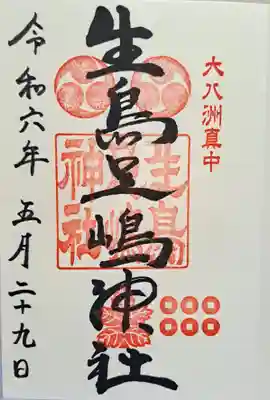 大八洲真中
生島足嶋神社
生島
神社
令和六年 五月二十九日